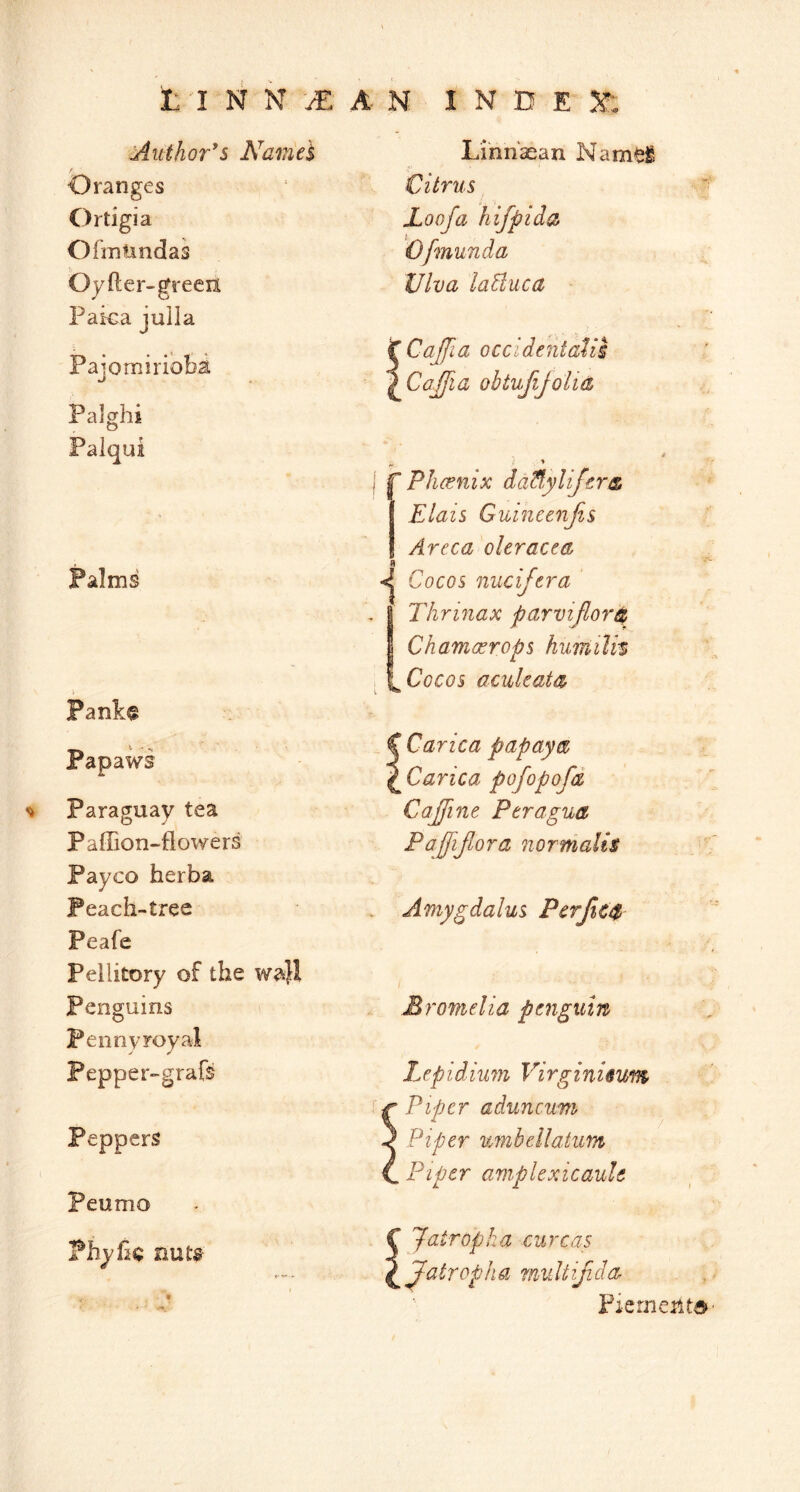 LINNÆAN INDEX.
Author's Names Linnæan Names
Oranges Citrus
Ortigia Looſa hiſpida
Oſmundas Oſmunda
Oyſter-green Ulva lactuca
Paica julla
Pajomirioba { Caſſia occidentalis
Caſſia obtuſifolia
Palghi
Palqui
Palms { Phœnix dactylifera
Elais Guineenſis
Areca oleracea
Cocos nucifera
Thrinax parviflora
Chamærops humilis
Cocos aculeata
Panke
Papaws { Carica papaya
Carica poſopoſa
Paraguay tea Caſſine Peragua
Paſſion-flowers Paſſiflora normalis
Payco herba
Peach-tree Amygdalus Perſica
Peaſe
Pellitory of the wall
Penguins Bromelia penguin
Pennyroyal
Pepper-graſs Lepidium Virginicum
Peppers { Piper aduncum
Piper umbellatum
Piper amplexicaule
Peumo
Phyſic nuts { Jatropha curcas
Jatropha multifida
Piemento